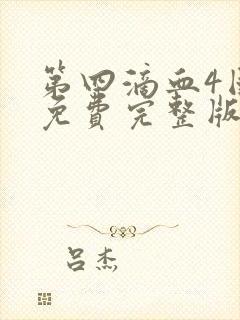 第四滴血4
免费完整版
吕杰